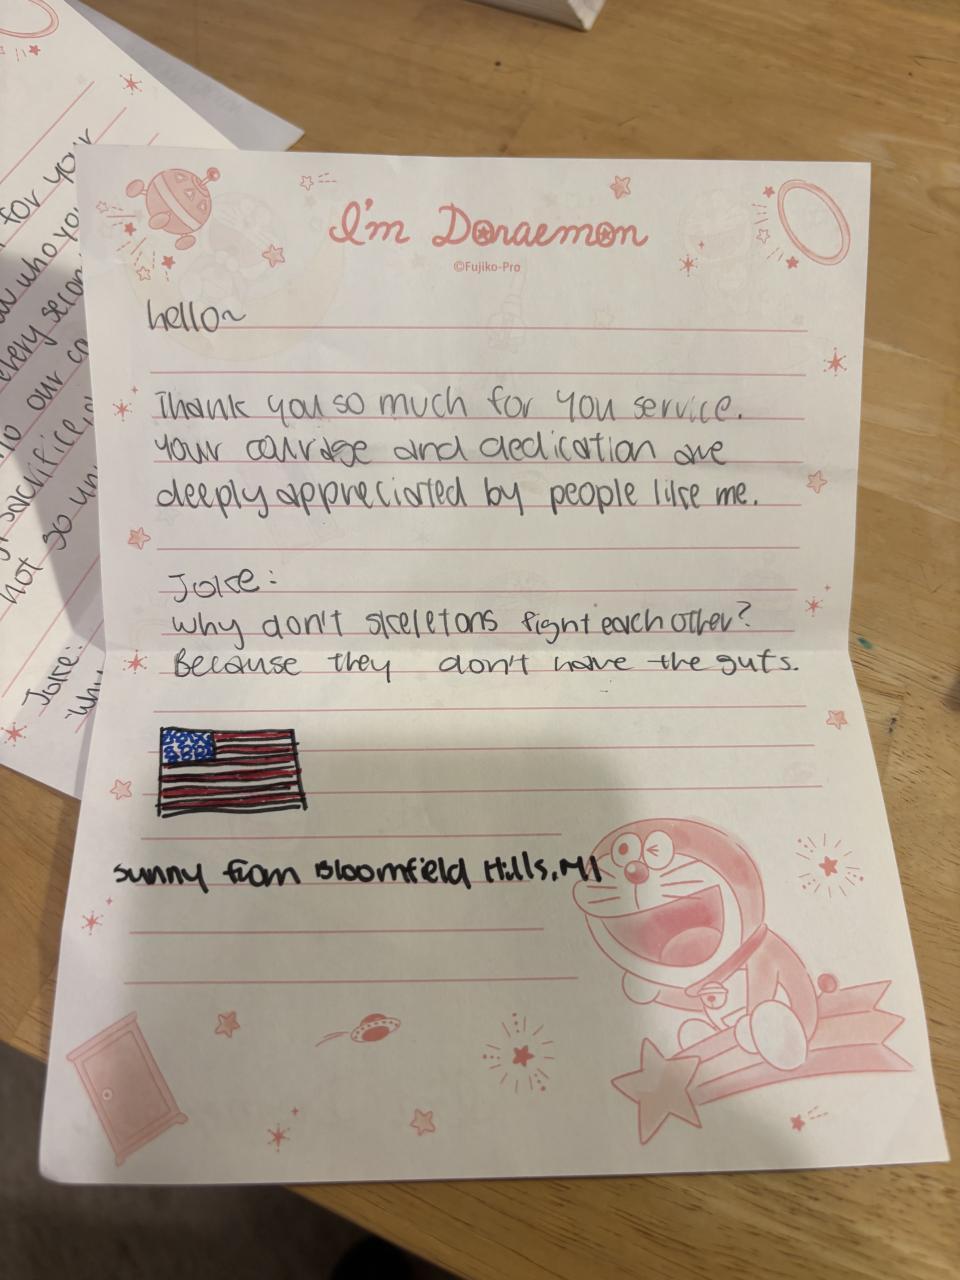 I'm Doraemon
©Fujiko-Pro
hello~
Thank you so much for you service.
Your courage and dedication are
deeply appreciated by people like me.
Joke:
Why don't skeletons fight each other?
Because they don't have the guts.
Sunny from Bloomfield Hills, MI
for your
who you
every secon
our co
sacrifice
not so
Joke:
Why